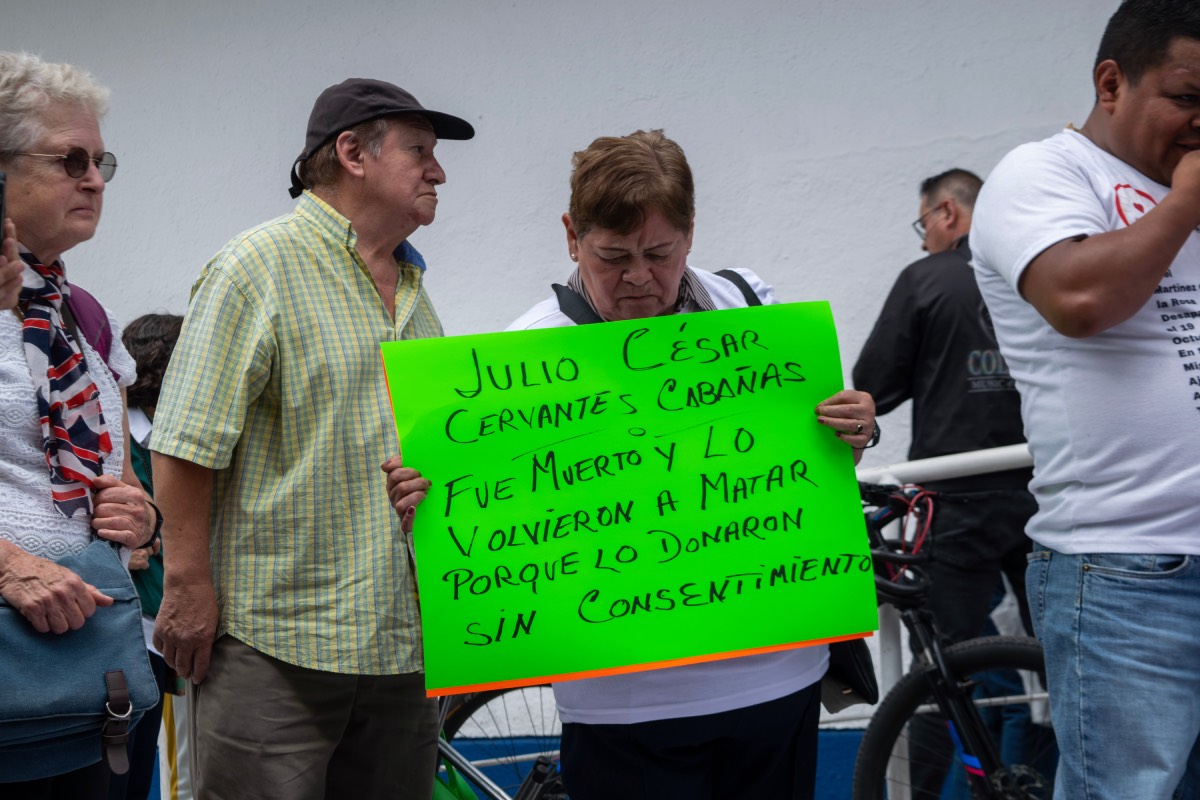 JULIO CÉSAR
CERVANTES CABAÑAS
FUE MUERTO Y LO
VOLVIERON A MATAR
PORQUE LO DONARON
SIN CONSENTIMIENTO
Martinez
la Rosa
Desapa
el 19
Octu
En